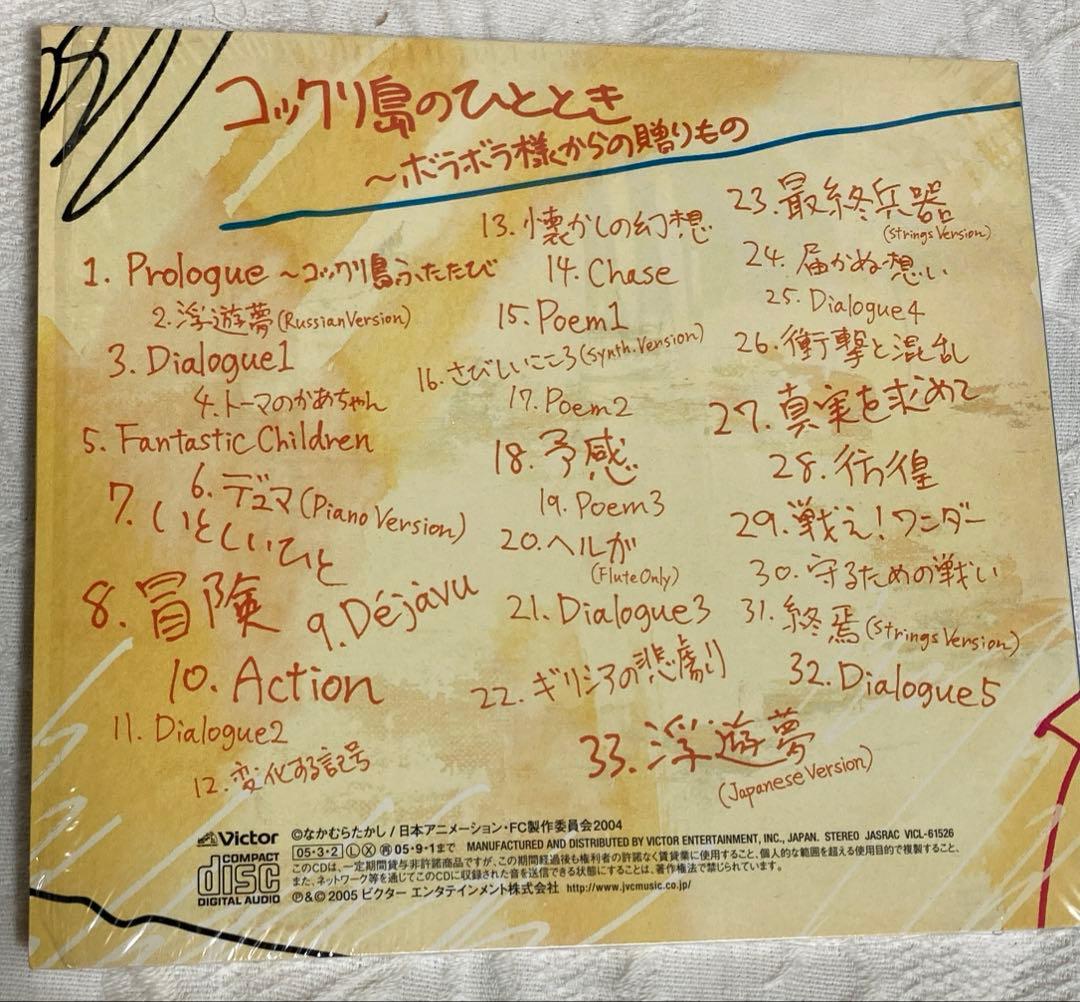 コックリ島のひととき
～ボラボラ様からの贈りもの
1. Prologue ～コックリ島ふたたび
2. 浮遊夢 (Russian Version)
3. Dialogue1
4. トーマのかあちゃん
5. Fantastic Children
6. デュマ (Piano Version)
7. いとしいひと
8. 冒険
9. Déjavu
10. Action
11. Dialogue2
12. 変化する記号
13. 懐かしの幻想
14. Chase
15. Poem1
16. さびしいこころ (Synth. Version)
17. Poem2
18. 予感
19. Poem3
20. ヘルガ
(Flute Only)
21. Dialogue3
22. ギリシアの悲劇り
23. 最終兵器
(Strings Version)
24. 届かぬ想い
25. Dialogue4
26. 衝撃と混乱
27. 真実を求めて
28. 彷徨
29. 戦え!ワンダー
30. 守るための戦い
31. 終焉 (Strings Version)
32. Dialogue5
33. 浮遊夢
(Japanese Version)
Victor
COMPACT
disc
DIGITAL AUDIO
©なかむらたかし / 日本アニメーション・FC製作委員会2004
05・3・2 Ⓛ Ⓧ 再 05・9・1まで MANUFACTURED AND DISTRIBUTED BY VICTOR ENTERTAINMENT, INC., JAPAN. STEREO JASRAC VICL-61526
このCDは、一定期間貸与非許諾商品ですが、この期間経過後も権利者の許諾なく賃貸業に使用すること、個人的な範囲を超える使用目的で複製すること、
また、ネットワーク等を通じてこのCDに収録された音を送信できる状態にすることは、著作権法で禁じられています。
Ⓟ&© 2005 ビクター エンタテインメント株式会社 http://www.jvcmusic.co.jp/